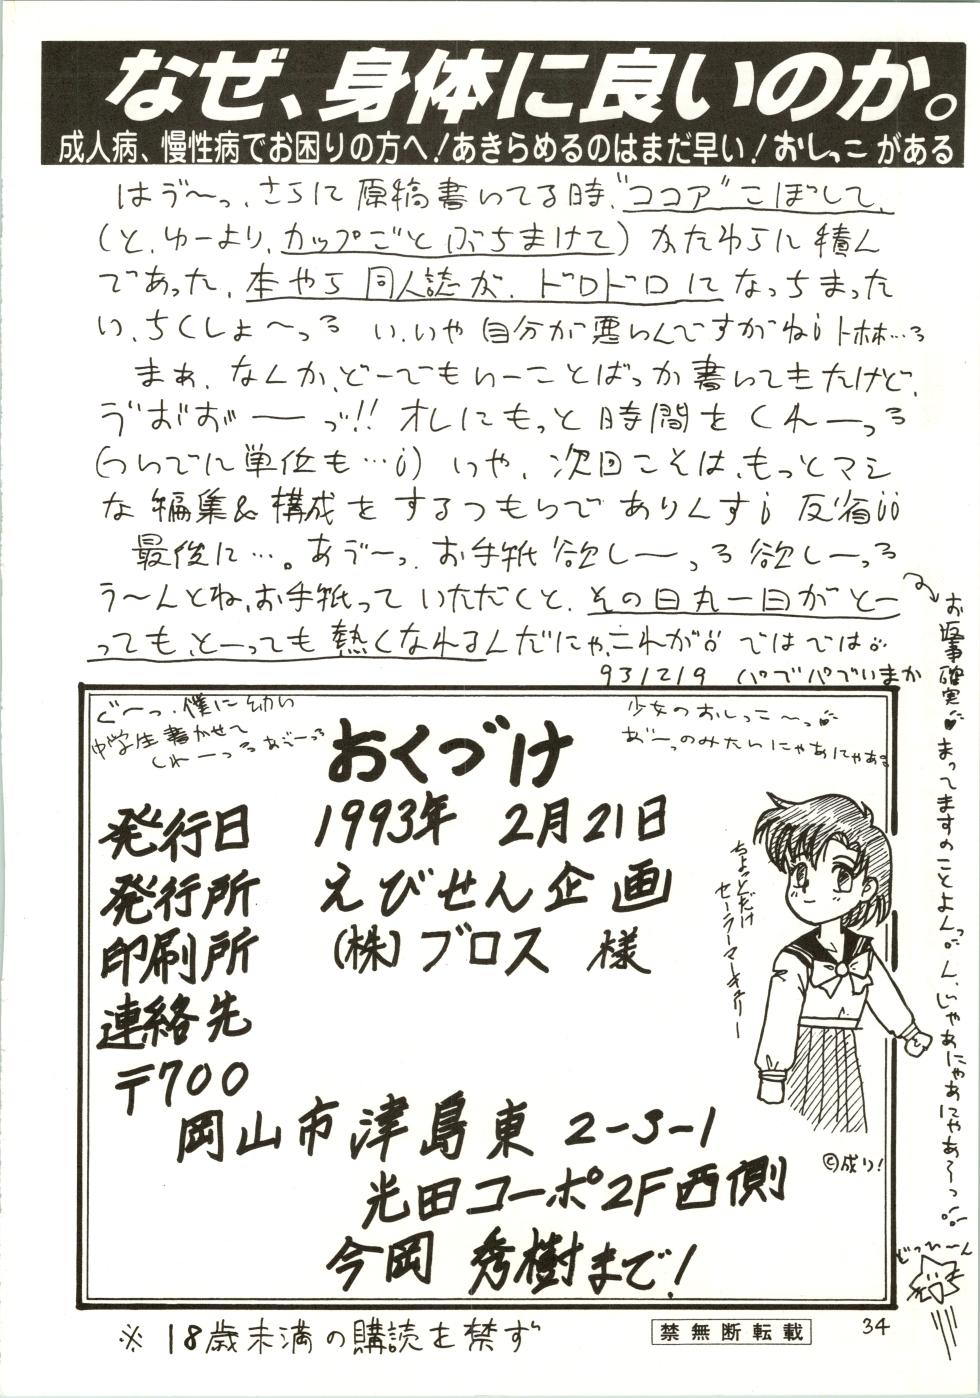 なぜ、身体に良いのか。
成人病、慢性病でお困りの方へ!あきらめるのはまだ早い!おしっこがある
はうﾞ〜っ、さらに原稿書いてる時、"ココア"こぼして、
(と、ゆーより、カップごとぶちまけて)かたわらに積ん
であった、本やら同人誌が、ドロドロになっちまった
い、ちくしょ〜っる い、いや自分が悪いんですがね
まぁ、なんか、どーでもいーことばっか書いてきたけど、
オレにもっと時間をくれーっる
(ついでに単位も…) いや、次回こそは、もっとマシ
な編集&構成をするつもりでありんす 反省
最後に…。あうﾞ〜っ、お手紙欲しーっる欲しーっる
う〜んとね、お手紙っていただくと、その日丸一日がとー
ってもとーっても熱くなれるんだにゃ、これが ではでは
931219 パブパブいまか
お返事確実 まってますのことよん
おくづけ
発行日 1993年 2月21日
発行所 えびせん企画
印刷所 (株)ブロス 様
連絡先
〒700
岡山市津島東 2-3-1
光田コーポ2F西側
今岡 秀樹まで!
ちょっとだけ
セーラーマーキュリー
©成り!
どっひーん
※18歳未満の購読を禁ず
禁無断転載
34